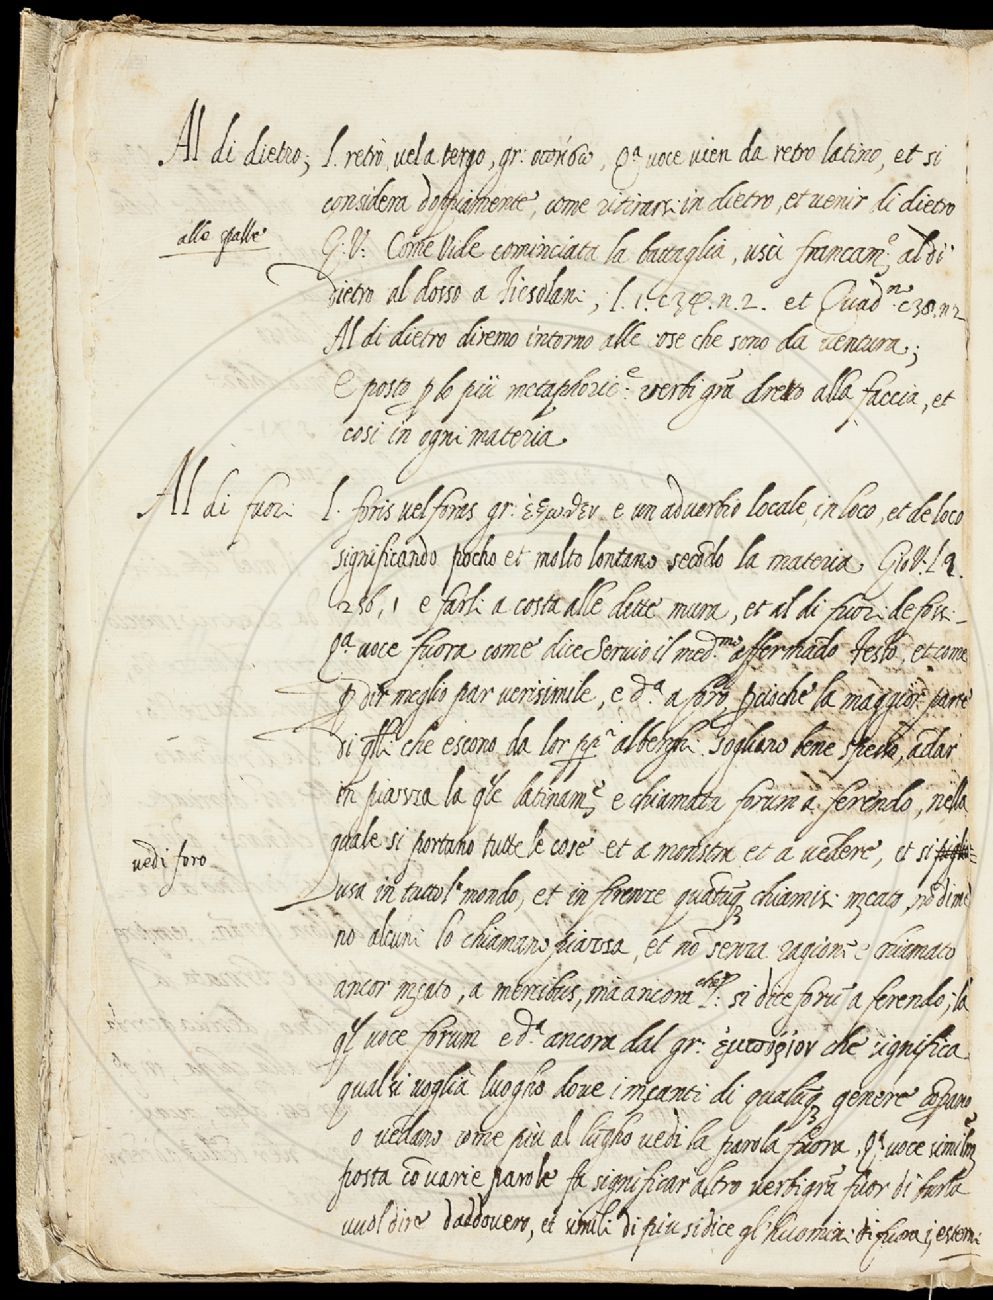 Al di dietro, l. retrò, vel a tergo, gr: ὀπίσω, Qª voce vien da retro latino, et si
considera doppiamente, come ritirarsi in dietro, et venir di dietro
alle spalle
G: V: Come vide cominciata la battaglia, uscì francamᵉ, al di
dietro al dosso a Fiesolani, l. 1. c 38. n. 2. et Quadⁿᵒ c38. n 2
Al di dietro diremo intorno alle cose che sono da ventura;
e posto p lo più metaphoricᵉ verbi grã dreto alla faccia, et
così in ogni materia
Al di fuori l. foris vel foras gr: ἔξωθεν e un adverbio locale, in loco, et de loco
significando pocho et molto lontano secõdo la materia Gio V: l 9.
256, 1 e farli a costa alle dette mura, et al di fuori de fossi
Qª voce fuora come dice Servio il medᵐᵒ affermãdo Festo, et come
p dir meglio par verisimile, e dª a foro, pcioche la maggior parte
di qlli che escono da lor ppi alberghi sogliano bene spesso, ãdar
in piazza la qle latinamᵉ e chiamata forum a ferendo, nella
quale si portano tutte le cose et a monstra et a vedere, et si
vedi foro
usa in tutto l mondo, et in firenze quãtuq chiamisi mcato, nõ dime
no alcuni lo chiamano piazza, et nõ senza ragione e chiamato
ancor mcato, a mercibus, ma ancora si dice forũ a ferendo; la
ql voce forum e dª ancora dal gr: ἐμπόριον che significa
qual si voglia luogho dove i mcanti di qualuq genere cõprano
o vedano come piu al lugho vedi la parola fuora, Qª voce similmᵉ
posta cõ varie parole fa significar altro verbi grã fuor di burla
vuol dire daddovero, et simili di piu si dice gl'huomini di fuora i, esterni